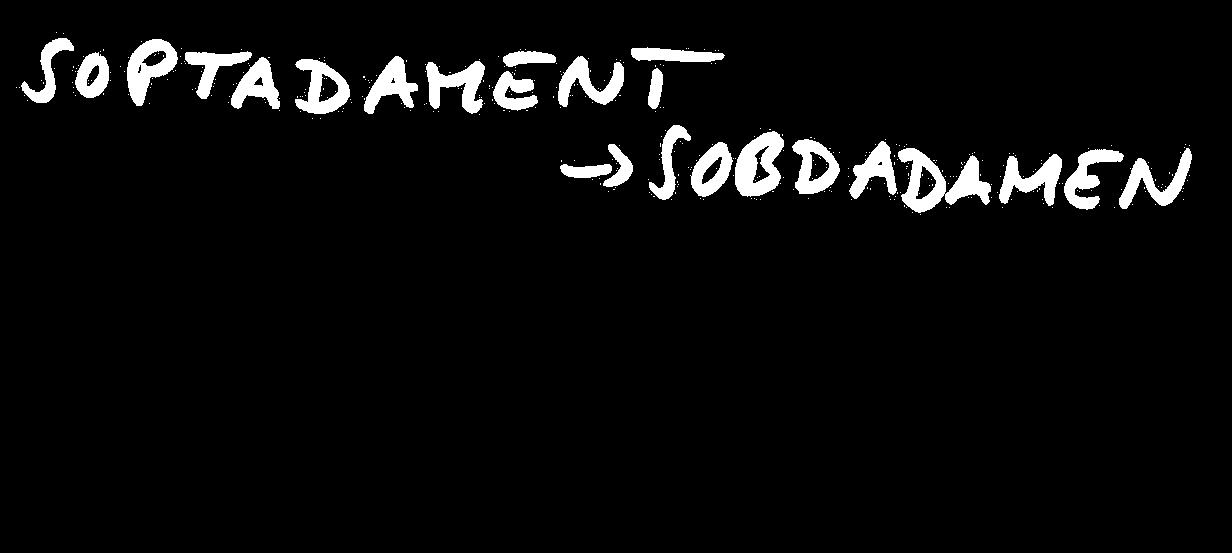 SOPTADAMENT
→SOBDADAMEN